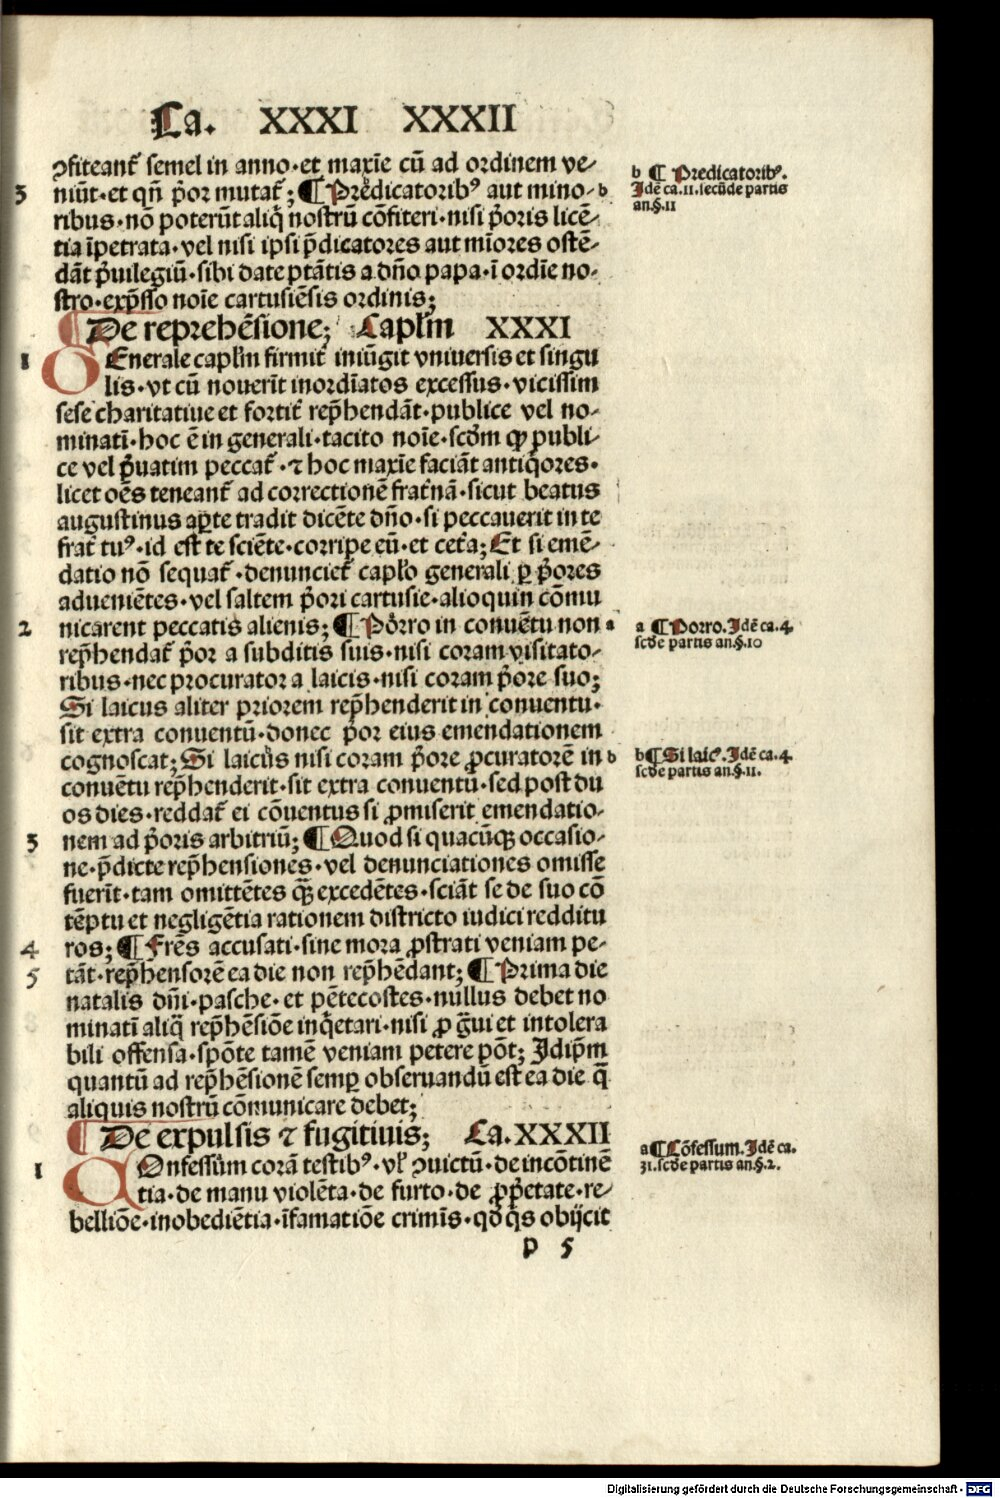 Ca. XXXI XXXII
ꝯfiteant᷑ semel in anno·et maxīe cū ad ordinem ve⸗
3 niūt·et qn̄ p̄or mutat᷑; ¶ Predicatoribꝰ aut mino⸗ b
ribus·nō poterūt aliq̄ nostrū cōfiteri·nisi p̄oris licē⸗
tia īpetrata·vel nisi ipsi p̄dicatores aut mīores ostē⸗
dāt p̄uilegiū·sibi date ptātis a dn̄o papa·ī ordīe no⸗
stro·exp̄sso noīe cartusiēsis ordinis;
¶ De reprehēsione; Caplm̄ XXXI
1 GEnerale caplm̄ firmit᷑ iniūgit vniuersis et singu
lis·vt cū nouerīt inordīatos excessus·vicissim
sese charitatiue et fortit᷑ rep̄hendāt·publice vel no⸗
minatī·hoc ē in generali·tacito noīe·scd̄m ꝙ publi⸗
ce vel p̄uatim peccat᷑·⁊ hoc maxīe faciāt antiq̄ores·
licet oēs teneant᷑ ad correctionē frat᷑nā·sicut beatus
augustinus aꝑte tradit dicēte dn̄o·si peccauerit in te
frat᷑ tuꝰ·id est te sciēte·corripe eū·et cet᷑a; Et si emē⸗
datio nō sequat᷑·denunciet᷑ caplo generali ꝑ p̄ores
adueniētes·vel saltem p̄ori cartusie·alioquin cōmu
2 nicarent peccatis alienis; ¶ Porro in conuētu non a
rep̄hendat᷑ p̄or a subditis suis·nisi coram visitato⸗
ribus·nec procurator a laicis·nisi coram p̄ore suo;
Si laicus aliter priorem rep̄henderit in conuentu·
sit extra conuentū·donec p̄or eius emendationem
cognoscat; Si laicus nisi coram p̄ore ꝓcuratorē in b
conuētu rep̄henderit·sit extra conuentū·sed post du
os dies·reddat᷑ ei cōuentus si ꝓmiserit emendatio⸗
3 nem ad p̄oris arbitriū; ¶ Quod si quacūqꝫ occasio⸗
ne·p̄dicte rep̄hensiones·vel denunciationes omisse
fuerīt·tam omittētes q̄ꝫ excedētes·sciāt se de suo cō
tēptu et negligētia rationem districto iudici redditu
4 ros; ¶ Fr̄es accusati·sine mora ꝓstrati veniam pe⸗
5 tāt·rep̄hensorē ea die non rep̄hēdant; ¶ Prima die
natalis dn̄i·pasche·et pētecostes·nullus debet no
minatī aliq̄ rep̄hēsiōe inq̄etari·nisi ꝓ g̃ui et intolera
bili offensa·spōte tamē veniam petere pōt; Idip̄m
quantū ad rep̄hēsionē semꝑ obseruandū est ea die q̄
aliquis nostrū cōmunicare debet;
¶ De expulsis ⁊ fugitiuis; Ca. XXXII
1 COnfessum corā testibꝰ·vl᷑ ꝯuictū·de incōtinē
tia·de manu violēta·de furto·de ꝓp̄etate·re⸗
belliōe·inobediētia·īfamatiōe crimīs·qd̄ q̄s obijcit
p 5
b ¶ Predicatoribꝰ.
Idē ca.11.secūde partis
an.§.11
a ¶ Porro. Idē ca.4.
scd̄e partis an.§.10
b ¶ Si laicꝰ. Idē ca.4.
scd̄e partis an.§.11.
a ¶ Cōfessum. Idē ca.
31.scd̄e partis an.§.2.
Digitalisierung gefördert durch die Deutsche Forschungsgemeinschaft · DFG